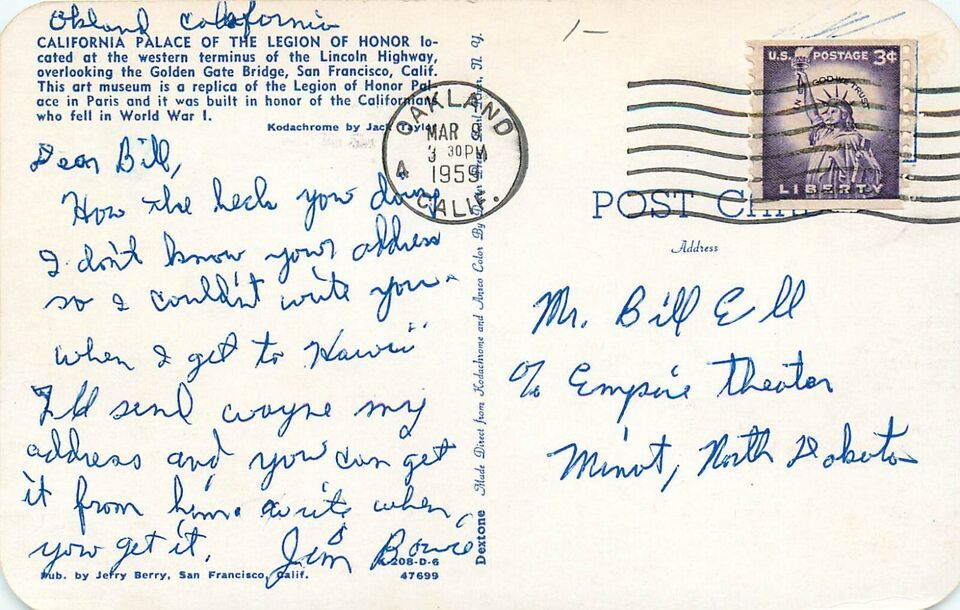 Okland California
CALIFORNIA PALACE OF THE LEGION OF HONOR lo-
cated at the western terminus of the Lincoln Highway,
overlooking the Golden Gate Bridge, San Francisco, Calif.
This art museum is a replica of the Legion of Honor Pal-
ace in Paris and it was built in honor of the Californians
who fell in World War I.
Kodachrome by Jack Taylor
Dear Bill,
How the heck you duing
I don't know your address
so I couldn't write you.
when I get to Hawii
I'll send wayne my
address and you can get
it from him. write when
you get it. Jim Bowie
Pub. by Jerry Berry, San Francisco, Calif.
208-D-6
47699
Dextone Made Direct from Kodachrome and Ansco Color By
OAKLAND
MAR 9
3 30PM
1959
CALIF.
4
U.S. POSTAGE 3¢
IN GOD WE TRUST
LIBERTY
POST CARD
Address
Mr. Bill Ell
c/o Empire Theater
Minot, North Dakota